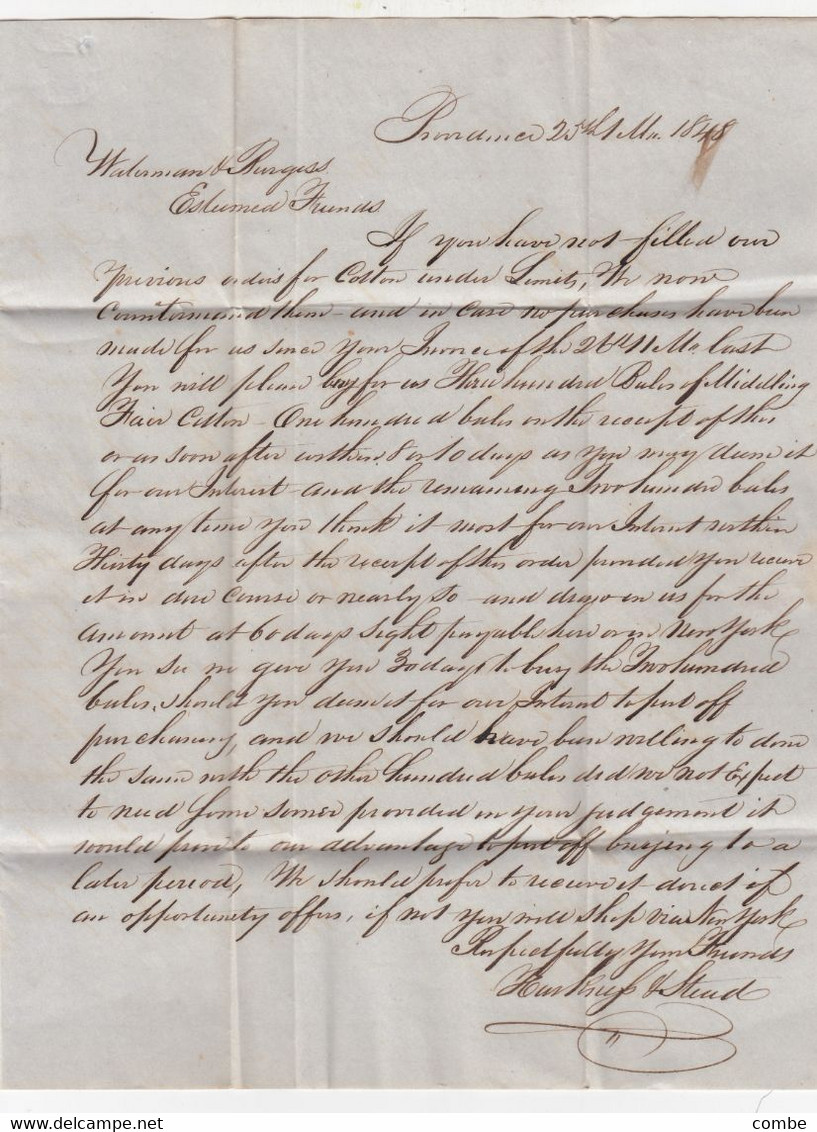 Providence 25th 1 Mo. 1848
Waterman & Burgess
Esteemed Friends
If you have not filled our
previous orders for Cotton under Limits, We now
Countermand them - and in case no purchases have been
made for us since your Invoice of the 26th 11 Mo. last
You will please buy for us Three hundred Bales of Middling
Fair Cotton - One hundred bales on the receipt of this
or as soon after within 8 or 10 days as you may deem it
for our Interest - and the remaining Two hundred bales
at any time you think it most for our Interest within
Thirty days after the receipt of this order provided you receive
it in due course or nearly so - and draw on us for the
amount at 60 days sight payable here or in New York
You see we give you 30 days to buy the Two hundred
bales, should you deem it for our Interest to put off
purchasing, and we should have been willing to done
the same with the other hundred bales did we not Expect
to need some sooner provided in your judgement it
would prove to our advantage to put off buying to a
later period, We should prefer to receive it direct if
an opportunity offers, if not you will ship via New York
Respectfully Your Friends
Harkness & Stead
combe
www.delcampe.net
combe